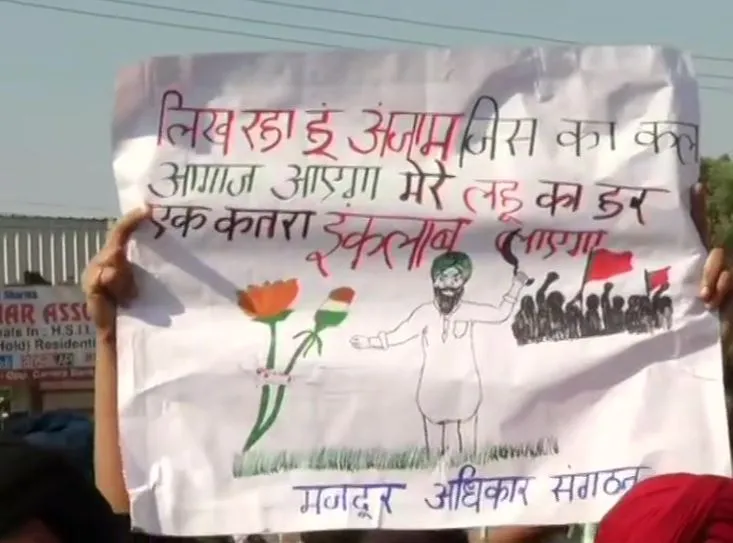 लिख रहा हूं अंजाम जिस का कल
आगाज आएगा मेरे लहू का हर
एक कतरा इंकलाब लाएगा
मजदूर अधिकार संगठन
Sharma
AR ASSO
als In : H.S.I.I.
Hold) Residenti